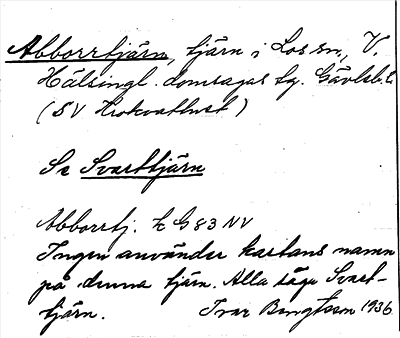 Abborrtjärn, tjärn i Los sn, V.
Hälsingl. domsagas tg. Gävleb. l.
(SV Krokvattnet)
Se Svarttjärn
Abborrtj. k G83 NV
Ingen använder kartans namn
på denna tjärn. Alla säga Svart-
tjärn. Ivar Bengtsson 1936